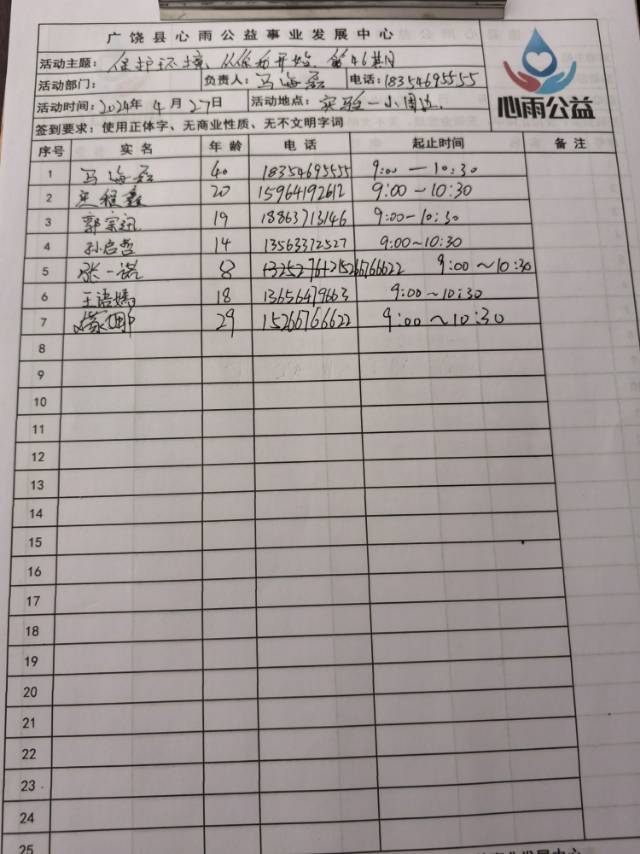 广饶县心雨公益事业发展中心
活动主题：保护环境、从你我开始 第46期
活动部门： 负责人：马海磊 电话：18354695555
活动时间：2024年4月27日 活动地点：实验一小周边
心雨公益
签到要求：使用正体字、无商业性质、无不文明字词
序号 实名 年龄 电话 起止时间 备注
1 马海磊 40 18354695555 9:00—10:30
2 20 15964192612 9:00—10:30
3 郭宗讯 19 18863713146 9:00—10:30
4 孙启哲 14 13563372527 9:00~10:30
5 张一诺 8 15266766622 9:00~10:30
6 王语嫣 18 13656479663 9:00~10:30
7 29 15266766622 9:00~10:30
8
9
10
11
12
13
14
15
16
17
18
19
20
21
22
23
24
25